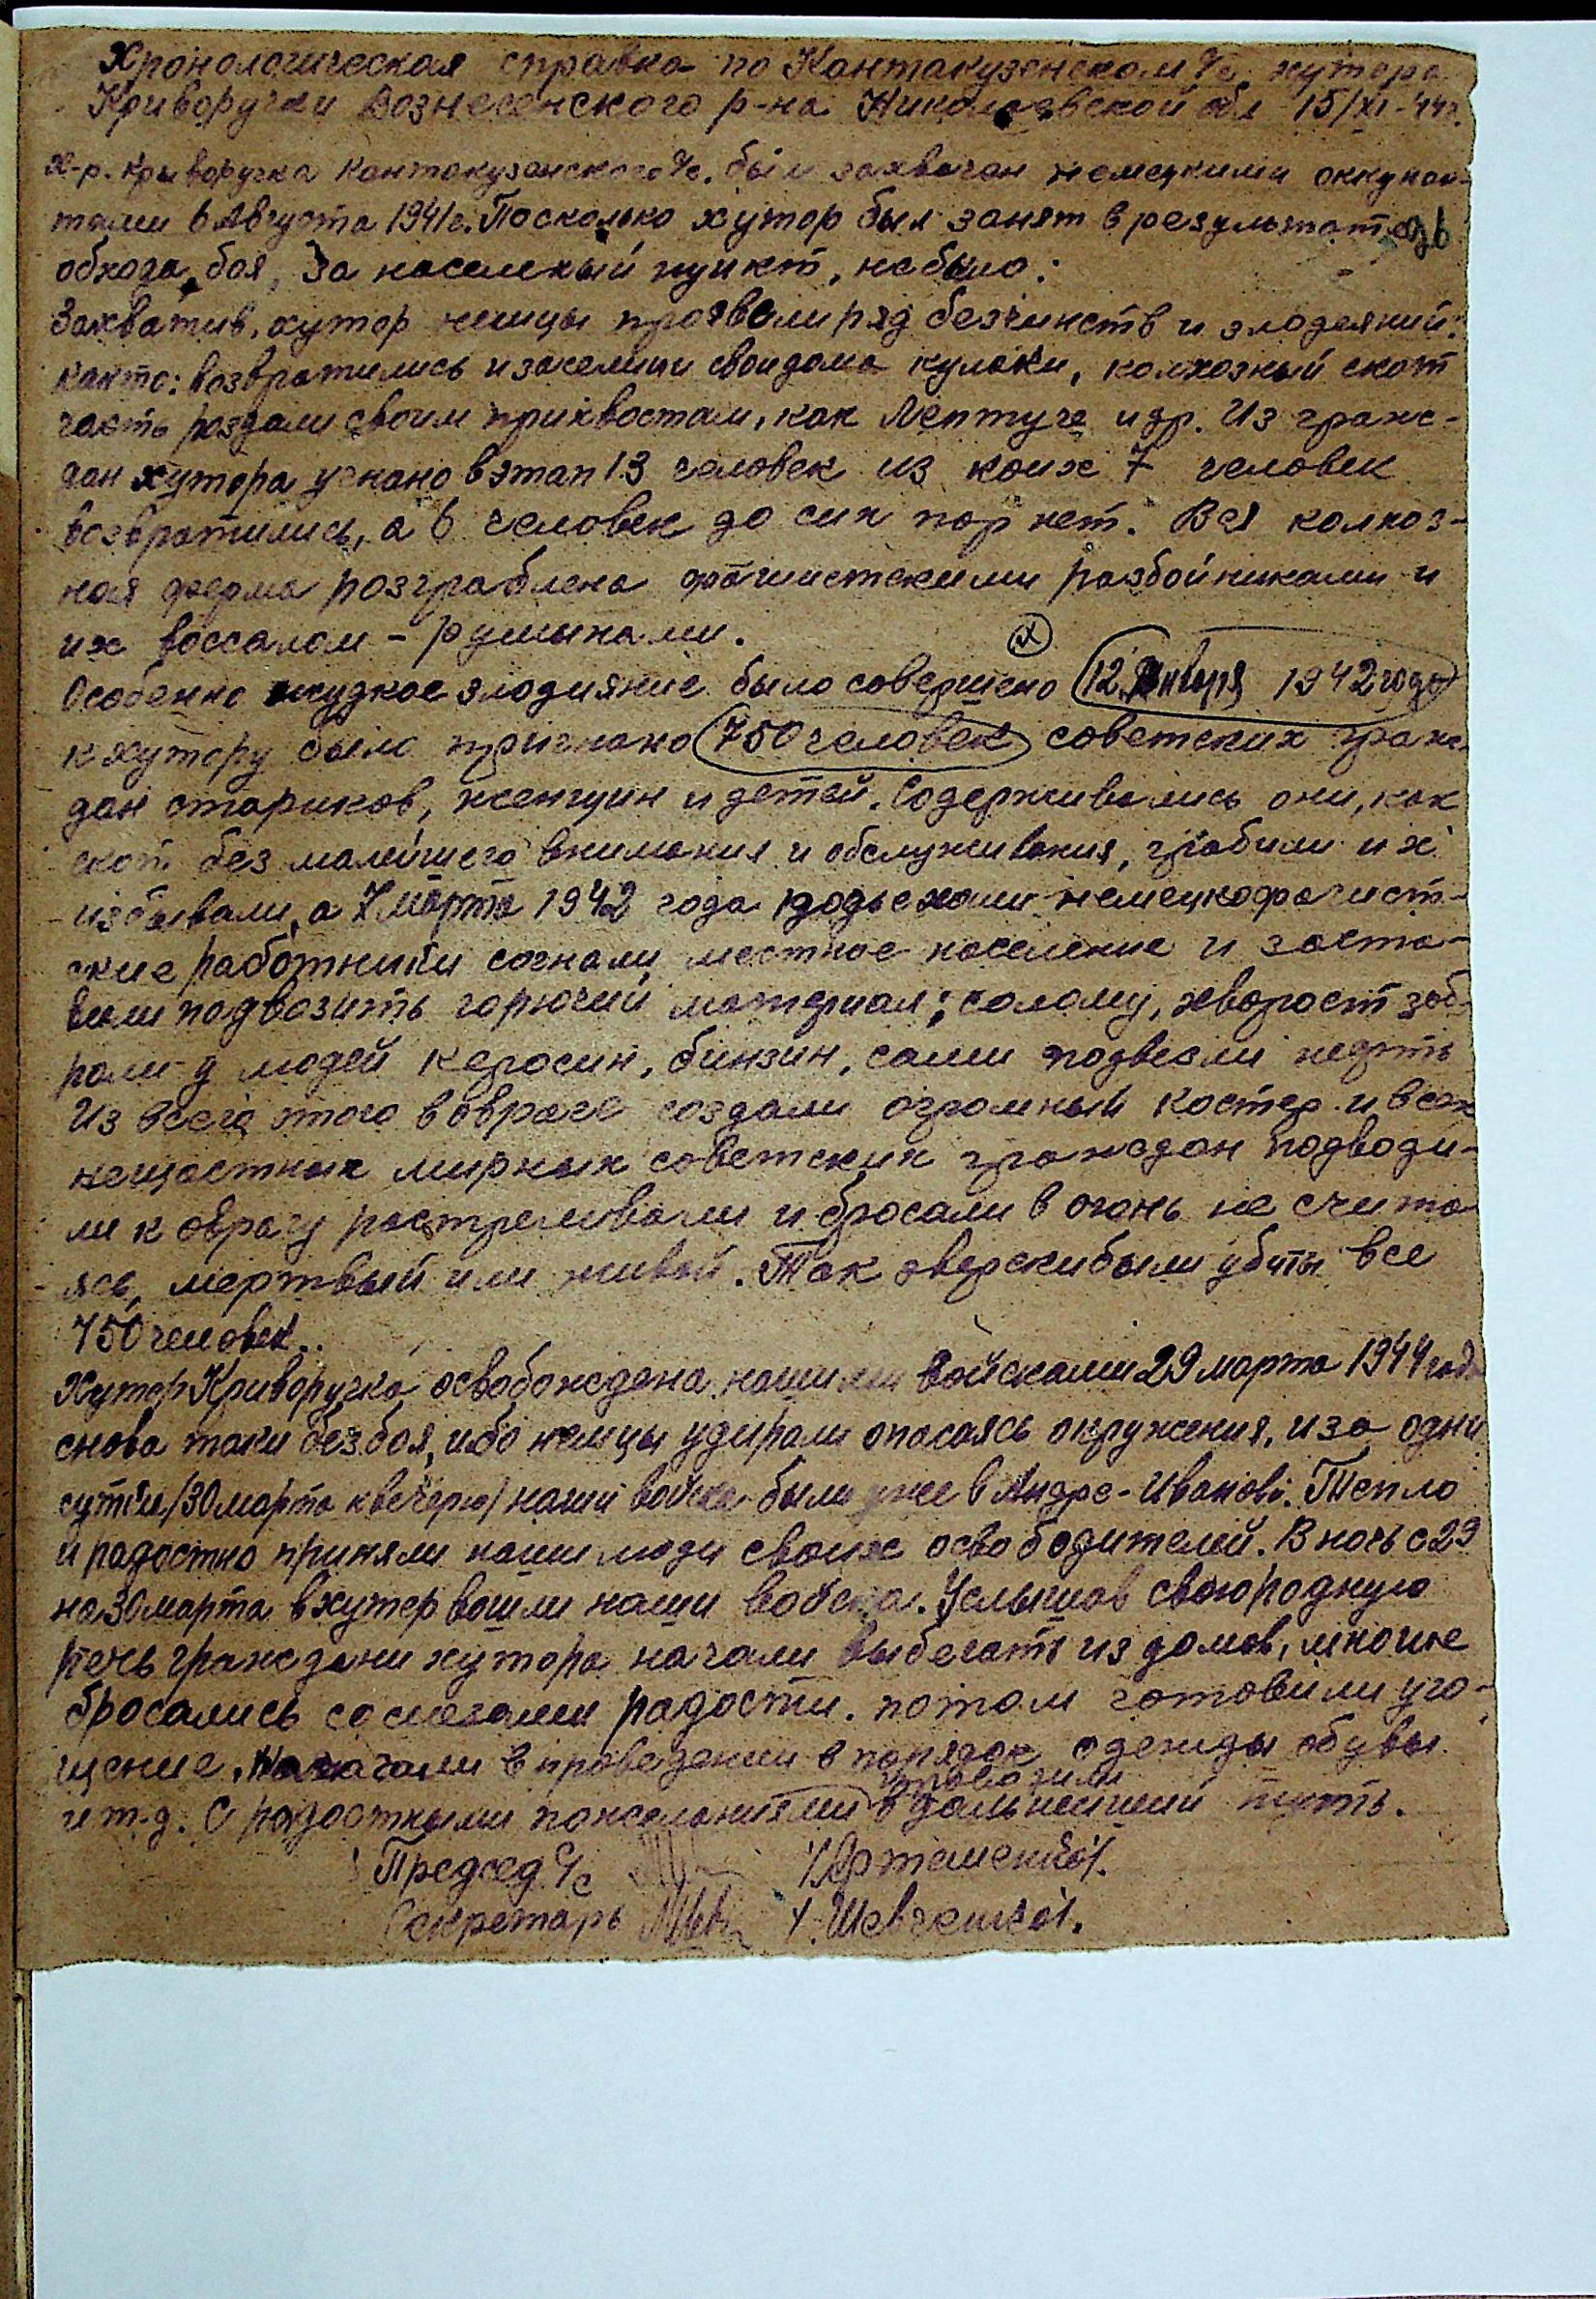 Хронологическая справка по Кантакузенском с/с. хутора
Криворучки Вознесенского р-на Николаевской обл 15/XI-44г.
Х-р. Криворучка Кантакузенского с/с. был захвачен немецкими оккупан-
тами 6 Августа 1941г. Посколько хутор был занят в результате
обхода, боя, за населеный пункт, не было.
Захватив, хутор немцы проявели ряд безчинств и злодеяний:
как то: возвратились и заселили свои дома кулаки, колхозный скот
часть раздали своим прихвостам, как Лептуге и др. Из граж-
дан хутора угнано в этап 13 человек из коих 7 человек
возвратились, а 6 человек до сих пор нет. Вся колхоз-
ная ферма розграблена фашистскими разбойниками и
их воссалом - румынами.
Особенно жудкое злодияние было совершено 12 Января 1942 года
к хутору было пригнано 750 человек советских граж-
дан стариков, женщин и детей. Содерживались они, как
скот без малейшего внимания и обслуживания, грабили их
избивали, а 7 марта 1942 года подьехали немецкофашист-
ские работники согнали местное население и заста-
вили подвозить горючий матерриал; солому, хворост заб-
рали у людей керосин, бинзин, сами подвезли нефть
Из всего этого в овраге создали огромный костер и всех
нещастных мирных советских граждан подводи-
ли к оврагу растреливали и бросали в огонь не счита-
ясь, мертвый или живой. Так зверски были убиты все
750 человек.
Хутор Криворучка освобождена нашими войсками 29 марта 1944 года
снова таки без боя, ибо немцы удирали опасаясь окружения, и за одни
сутки /30 марта к вечерю/ наши войска были уже в Андре-Иванові. Тепло
и радостно приняли наши люди своих освободителей. В ночь с 29
на 30 марта в хутор вошли наши войска. Услышав свою родную
речь граждани хутора начали выбегать из домов, многие
бросались со слезами радости. потом готовили уго-
щение, помогали в проведении в порядок одежды обувы
проводили
и т.д. С радостными пожеланиями в дальнейший путь.
Председ с/с /Артеменко/.
Секретарь /Шевченко/.